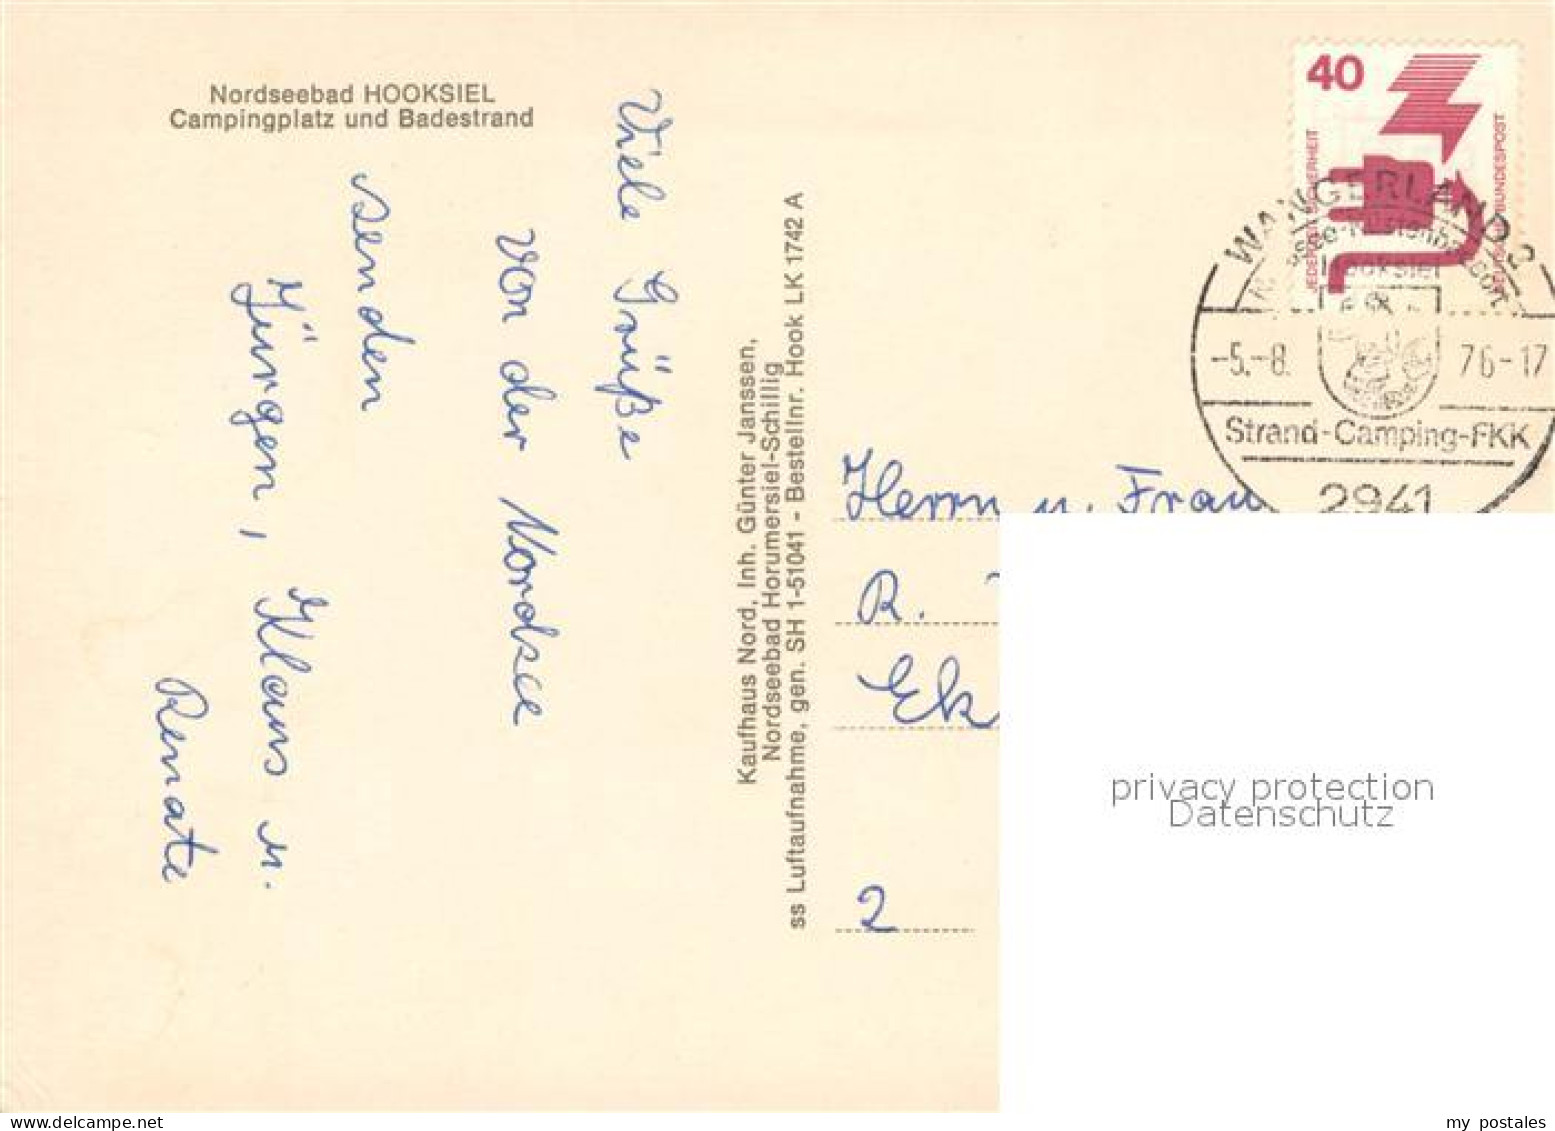 Nordseebad HOOKSIEL
Campingplatz und Badestrand
Viele Grüße
von der Nordsee
senden
Jürgen, Klaus u.
Renate
Kaufhaus Nord, Inh. Günter Janssen,
Nordseebad Horumersiel-Schillig
ss Luftaufnahme, gen. SH 1-51041 - Bestellnr. Hook LK 1742 A
40
JEDERZEIT SICHERHEIT
DEUTSCHE BUNDESPOST
WANGERLAND 2
Hooksiel
-5.-8. 76-17
Strand-Camping-FKK
2941
Herrn u. Frau
R.
Ek
2
privacy protection
Datenschutz
delcampe.net
my_postales